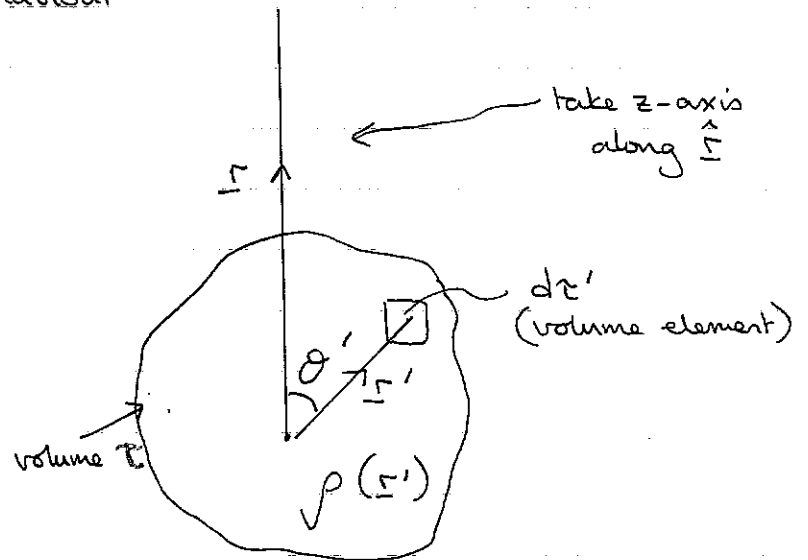 take z-axis
along r̂
r
dτ'
(volume element)
θ'
r'
volume τ
ρ(r')